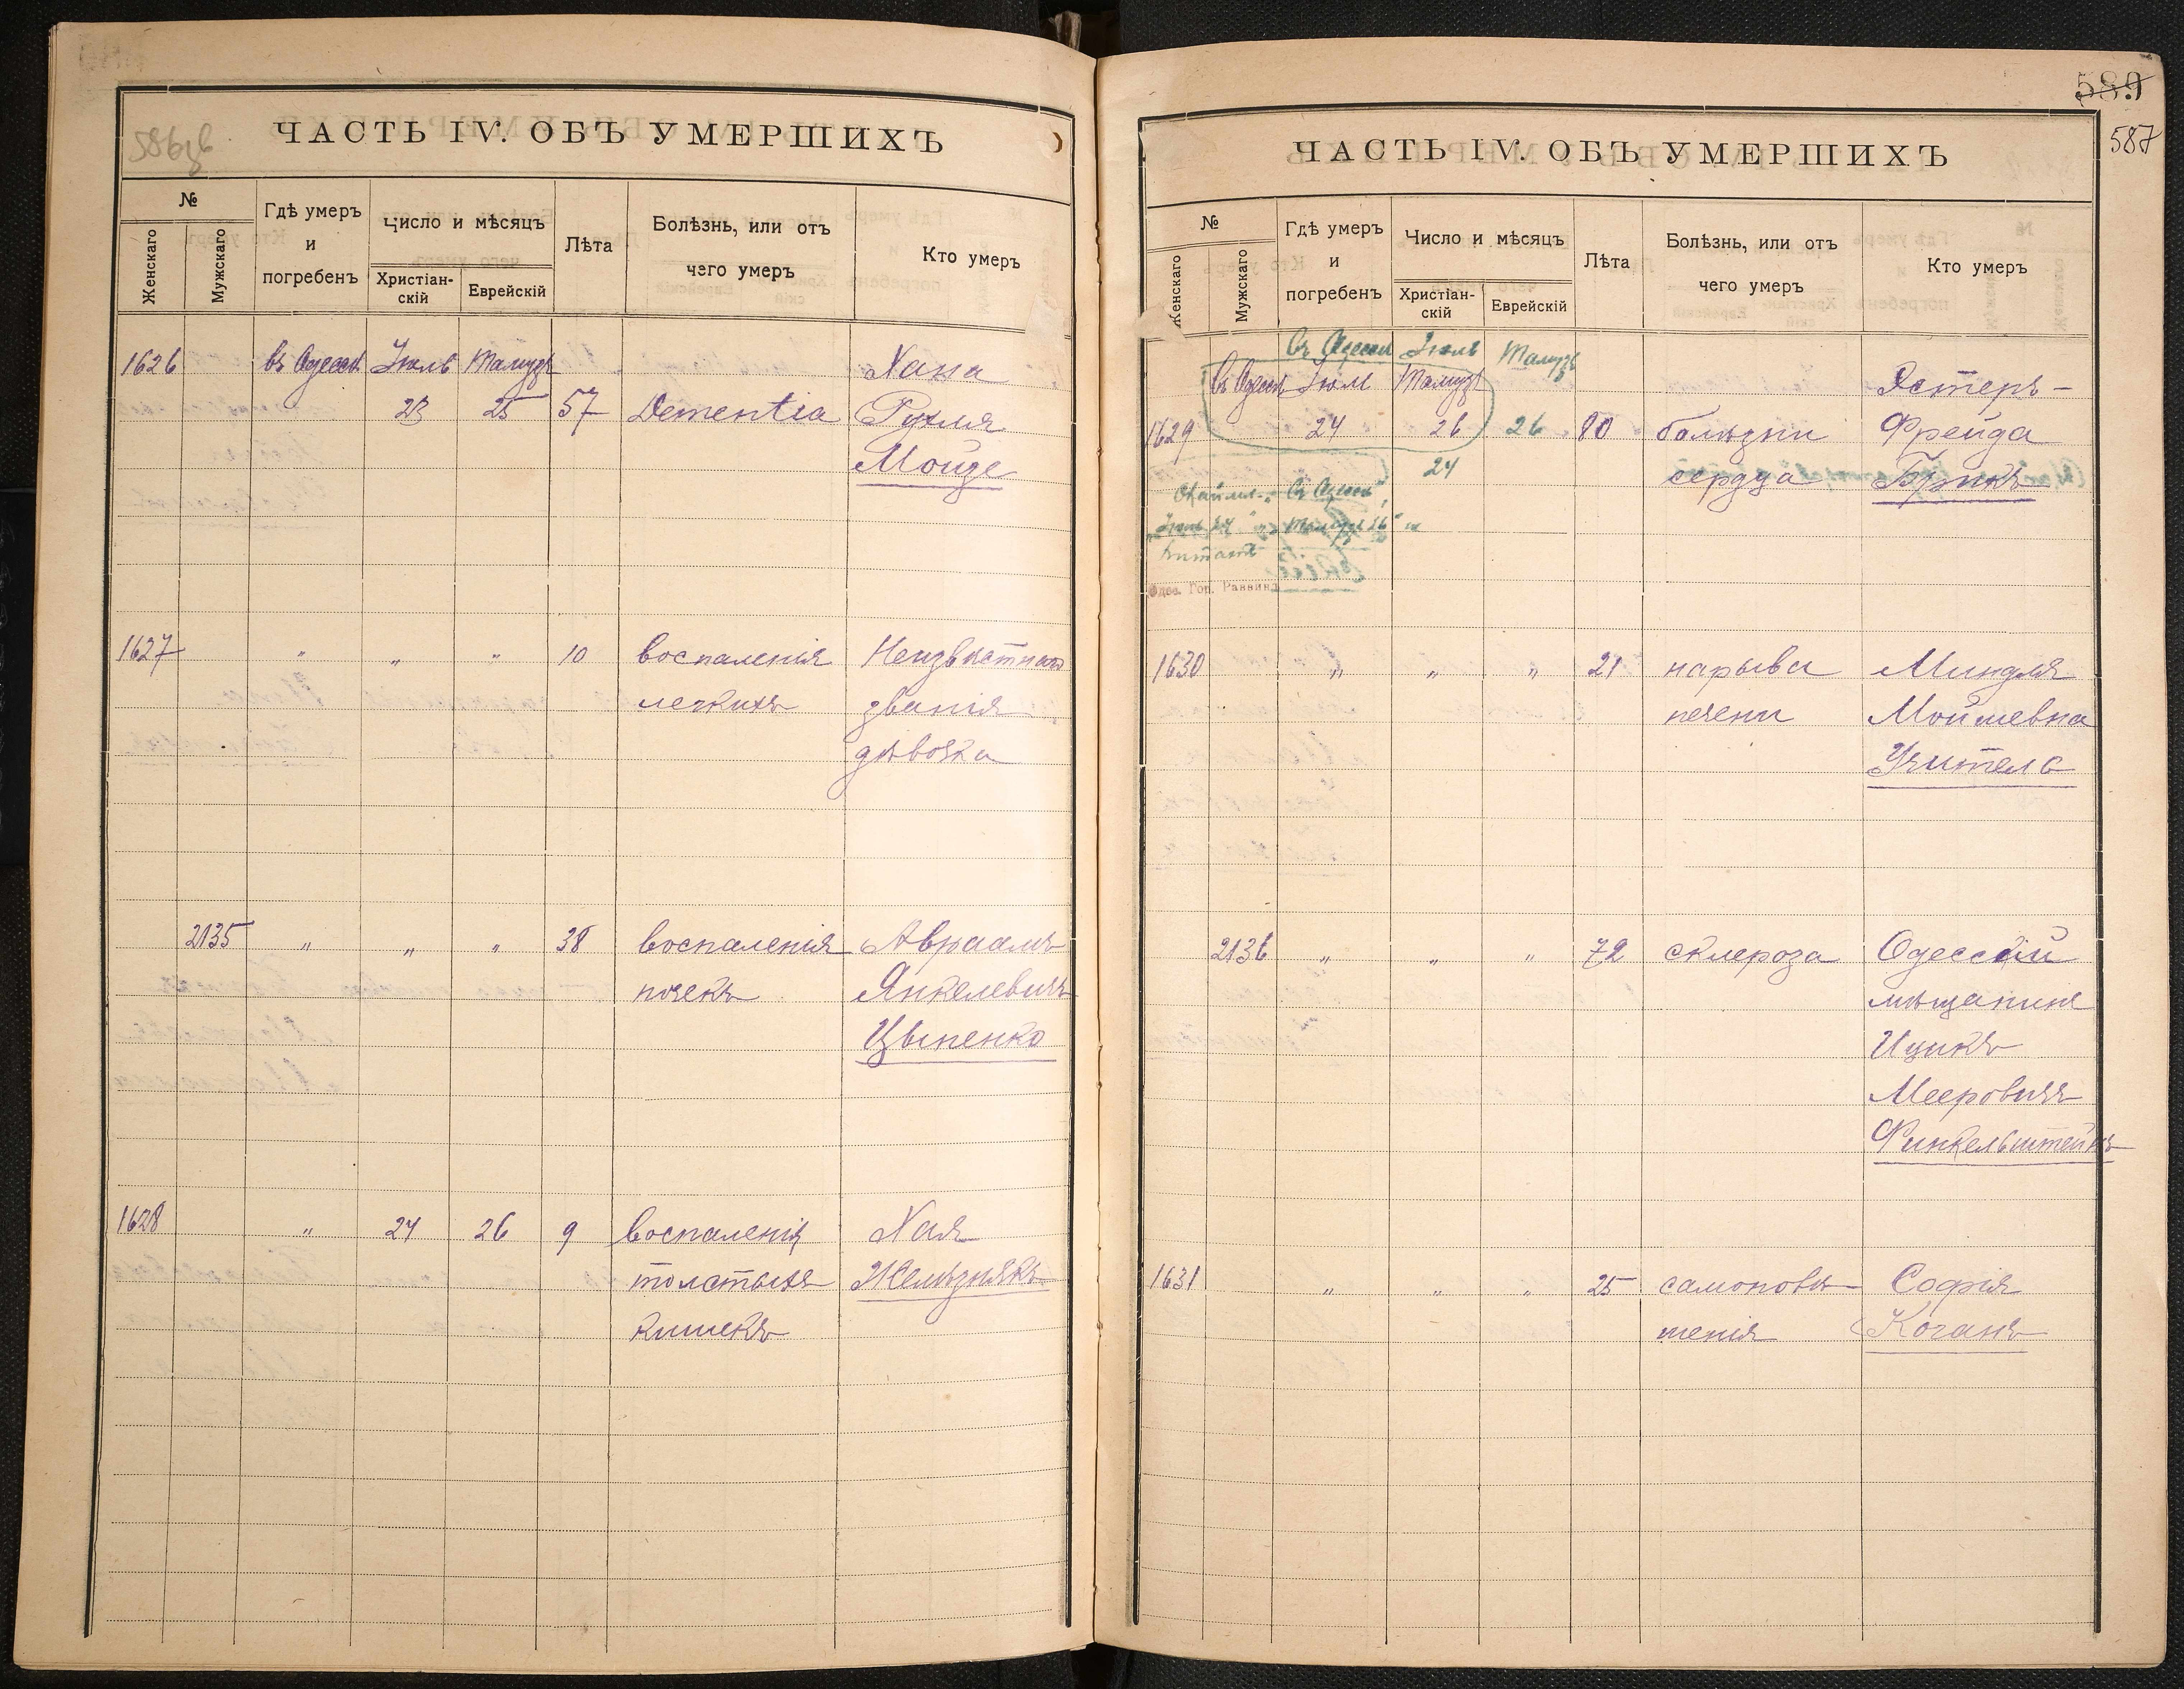 586 об
ЧАСТЬ IV. ОБЪ УМЕРШИХЪ
№
Женскаго
Мужскаго
Гдѣ умеръ
и
погребенъ
Число и мѣсяцъ
Христіан-
скій
Еврейскій
Лѣта
Болѣзнь, или отъ
чего умеръ
Кто умеръ
1626 въ Одессѣ Іюль Тамузъ Хана
23 25 57 Dementia Рухля
Мойзе
1627 " " " 10 воспаленія Неизвѣстнаго
легкихъ званія
дѣвочка
2135 " " " 38 воспаленія Авраамъ
почекъ Янкелевичъ
Цыпенко
1628 " 24 26 9 воспаленія Хая
толстыхъ Желѣзнякъ
кишекъ
589
587
ЧАСТЬ IV. ОБЪ УМЕРШИХЪ
№
Женскаго
Мужскаго
Гдѣ умеръ
и
погребенъ
Число и мѣсяцъ
Христіан-
скій
Еврейскій
Лѣта
Болѣзнь, или отъ
чего умеръ
Кто умеръ
въ Одессѣ Іюль Тамузъ
въ Одессѣ Іюль Тамузъ Эстеръ-
1629 24 26 26 80 болѣзни Фрейда
24 сердца
"въ Одессѣ",
"Іюль 24" "Тамузъ 26" не
читать
Одес. Гор. Раввинъ
1630 " " " 21 нарыва Миндля
печени Мойшевна
Учитель
2136 " " " 72 склероза Одесскій
мѣщанинъ
Ицикъ
Мееровичъ
Финкельштейнъ
1631 " " " 25 самоповѣ- Софія
шенія Коганъ